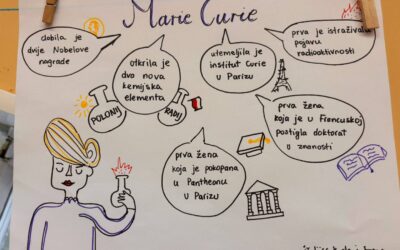 Marie Curie
dobila je
dvije Nobelove
nagrade
otkrila je
dva nova
kemijska
elementa
POLONIJ
RADIJ
utemeljila je
institut Curie
u Parizu
prva je istraživala
pojavu
radioaktivnosti
prva žena
koja je u Francuskoj
postigla doktorat
u znanosti
prva žena
koja je pokopana
u Pantheonu
u Parizu